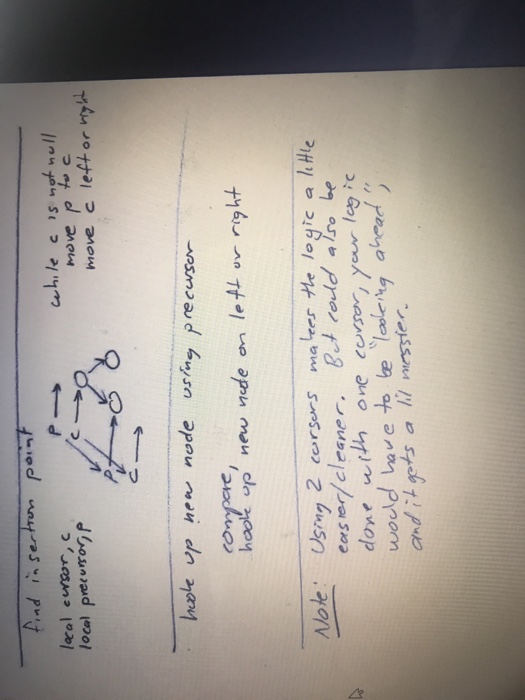 find insertion point
local cursor, c
local precursor, p
P →
c →
P
c →
while c is not null
move p to c
move c left or right
hook up new node using precursor
compare,
hook up new node on left or right
Note: Using 2 cursors makes the logic a little
easier/cleaner. But could also be
done with one cursor, your logic
would have to be "looking ahead",
and it gets a lil messier.